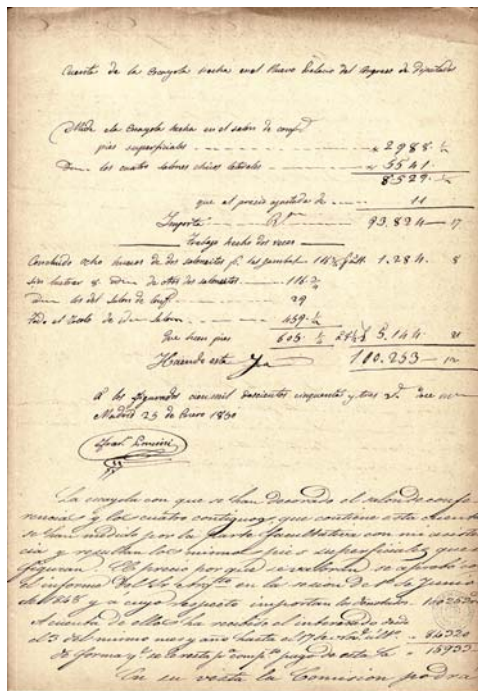 Cuenta de la Escayola hecha en el Nuevo Palacio del Congreso de Diputados
Mide ela Escayola hecha en el salon de conf.
pies superficiales 2988 ½
Idem los cuatro salones chicos laterales 5541.
8.529. ½
que al precio ajustado de 11
Importa Rs 93.824 17
Trabajo hecho dos veces
Concluido ocho huecos de dos saloncitos 1.284. 8
sin lustrar 8 idem de otros dos saloncitos 116
idem los del Salon de Conf. 29
Todo el Zocalo de idem Salon 459. ½
Que hacen pies 605. ½ 5.144. 21
Haciendo esta 100.253 12
A los figurados cien mil doscientos cincuenta y tres
Madrid 25 de Enero 1850
La escayola con que se han decorado el salon de confe
rencias y los cuatro contiguos, que contiene esta cuenta
se han medido por la parte facultativa con mi asisten
cia y resultan los mismos pies superficiales que
figuran. El precio por que se valoran se aprobó en
el informe del en la sesion de 1º de Junio
de 1848 y a cuyo respecto importan los
A cuenta de ellos ha recibido el interesado desde
el 3 del mismo mes y año hasta el 17 de 84320
de forma que se le resta 15933
En su vista la Comision podrá